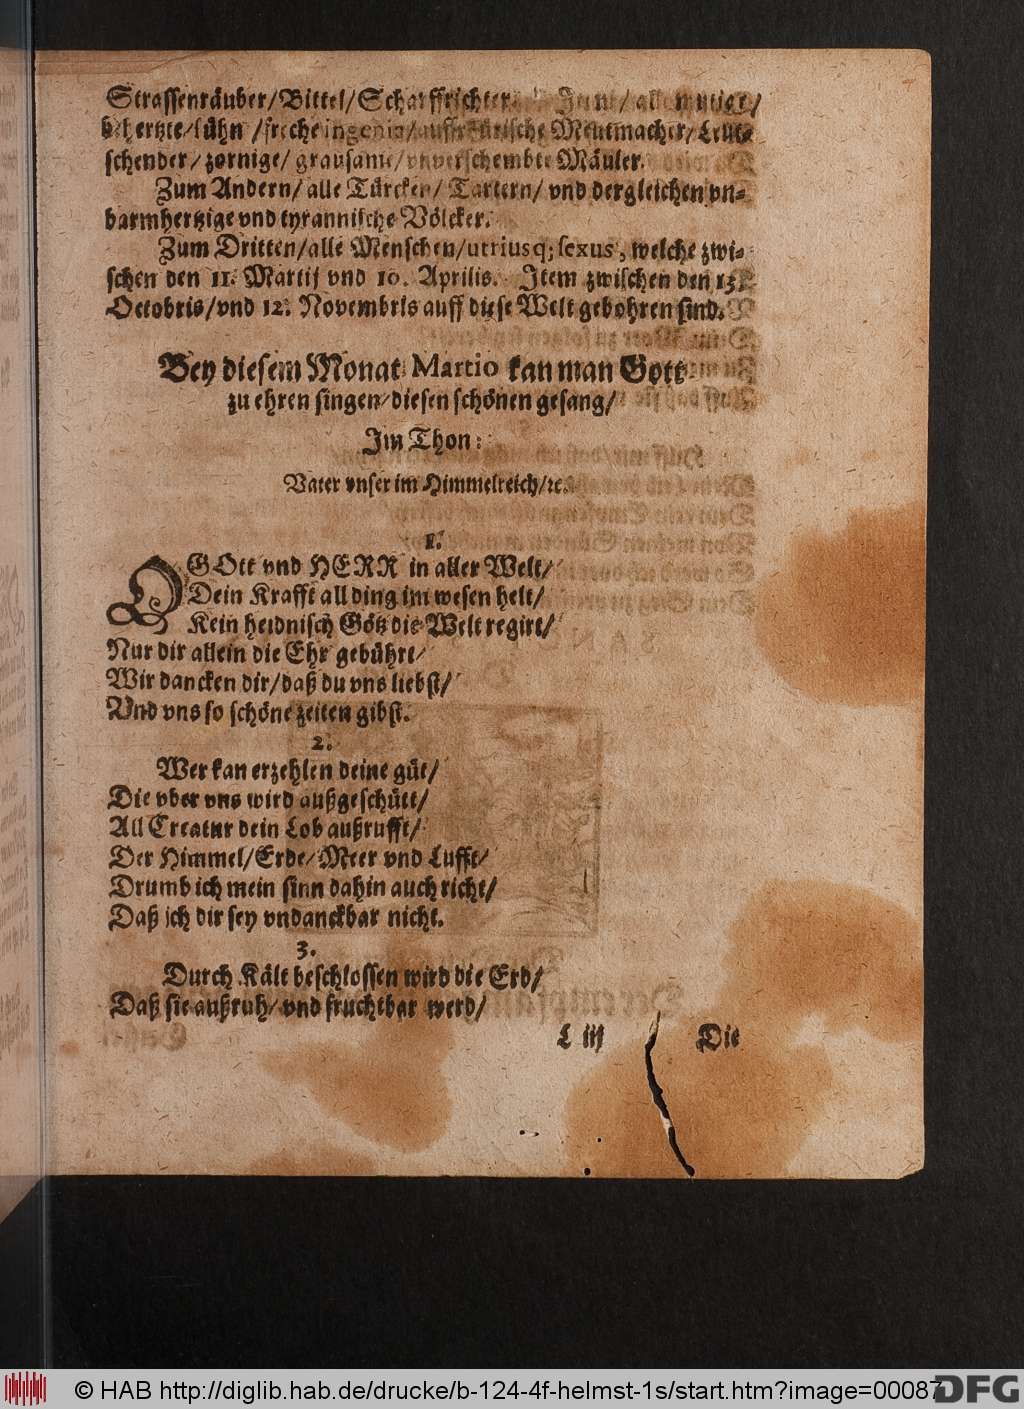 Strassenräuber/ Büttel/ Scharffrichter. Item/ alle mutige/
behertzte/ kühn/ freche ingenia/ auffrührische Meutmacher/ Leut-
schender/ zornige/ grausame/ vnverschembte Mäuler.
Zum Andern/ alle Türcken/ Tartern/ vnd dergleichen vn-
barmhertzige vnd tyrannische Völcker.
Zum Dritten/ alle Menschen/ utriusq; sexus, welche zwi-
schen den 11. Martij vnd 10. Aprilis. Item zwischen den 13.
Octobris/ vnd 12. Novembris auff diese Welt gebohren sind.
Bey diesem Monat Martio kan man Gott
zu ehren singen/ diesen schönen gesang/
Im Thon:
Vater vnser im Himmelreich/ ꝛc.
1.
O GOtt vnd HERR in aller Welt/
Dein Krafft all ding im wesen helt/
Kein heidnisch Götz die Welt regirt/
Nur dir allein die Ehr gebührt/
Wir dancken dir/ daß du vns liebst/
Vnd vns so schöne zeiten gibst.
2.
Wer kan erzehlen deine güt/
Die vber vns wird außgeschütt/
All Creatur dein Lob außrufft/
Der Himmel/ Erde/ Meer vnd Lufft/
Drumb ich mein sinn dahin auch richt/
Daß ich dir sey vndanckbar nicht.
3.
Durch Kält beschlossen wird die Erd/
Daß sie außruh/ vnd fruchtbar werd/
L iij Die
© HAB http://diglib.hab.de/drucke/b-124-4f-helmst-1s/start.htm?image=00087
DFG